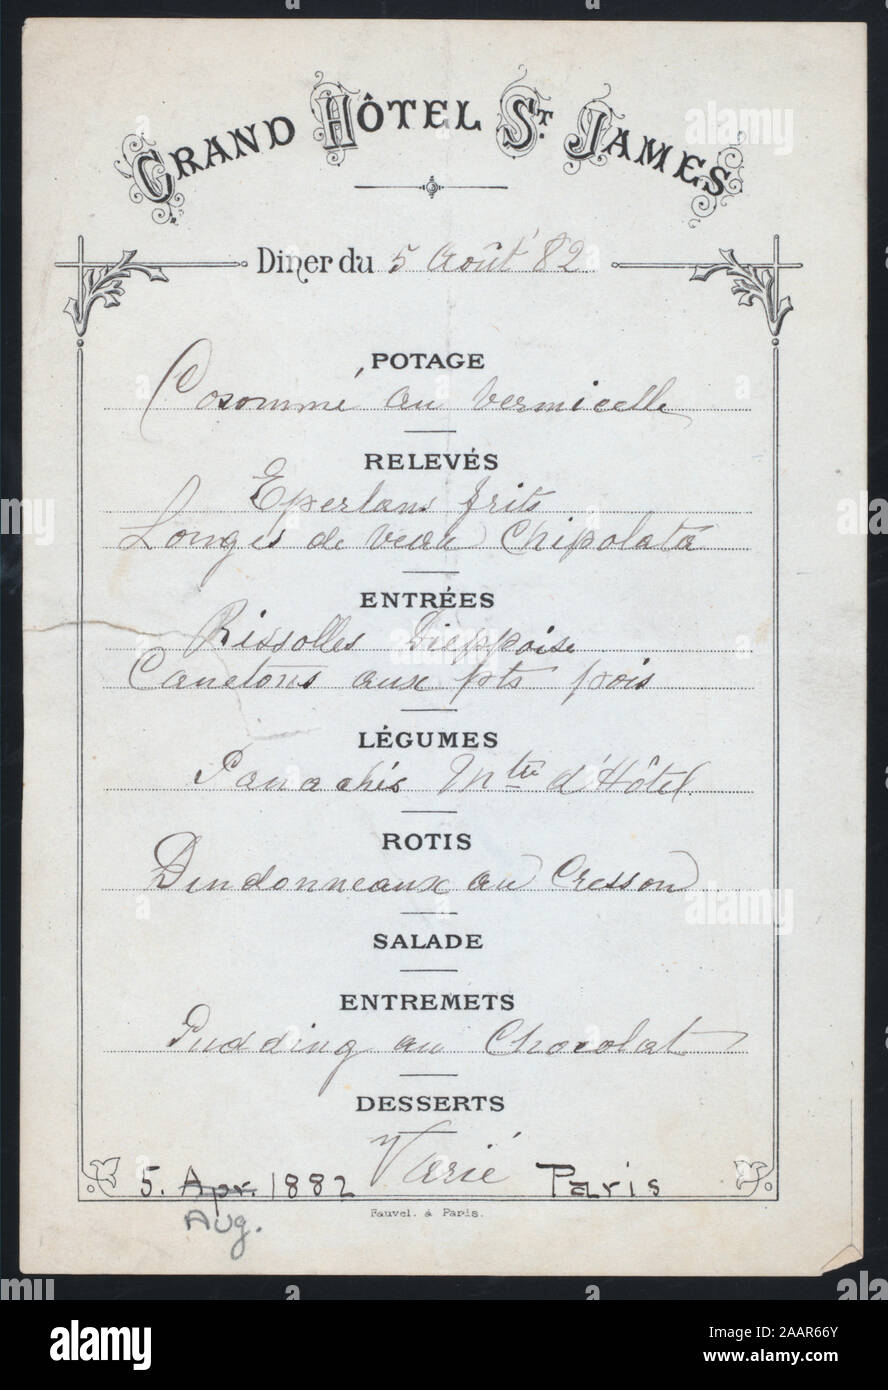 GRAND HÔTEL ST. JAMES
Diner du 5 Août 82
POTAGE
Cosommé au Vermicelle
RELEVÉS
Eperlans frits
Longes de veau Chipolata
ENTRÉES
Rissolles Dieppoise
Canetons aux pts pois
LÉGUMES
Panachés Mtre d'Hôtel
ROTIS
Dindonneaux au Cresson
SALADE
ENTREMETS
Pudding au Chocolat
DESSERTS
Varié
5. Apr. 1882 Paris
Aug.
Fauvel. à Paris.
alamy
alamy
alamy
Image ID: 2AAR66Y
www.alamy.com